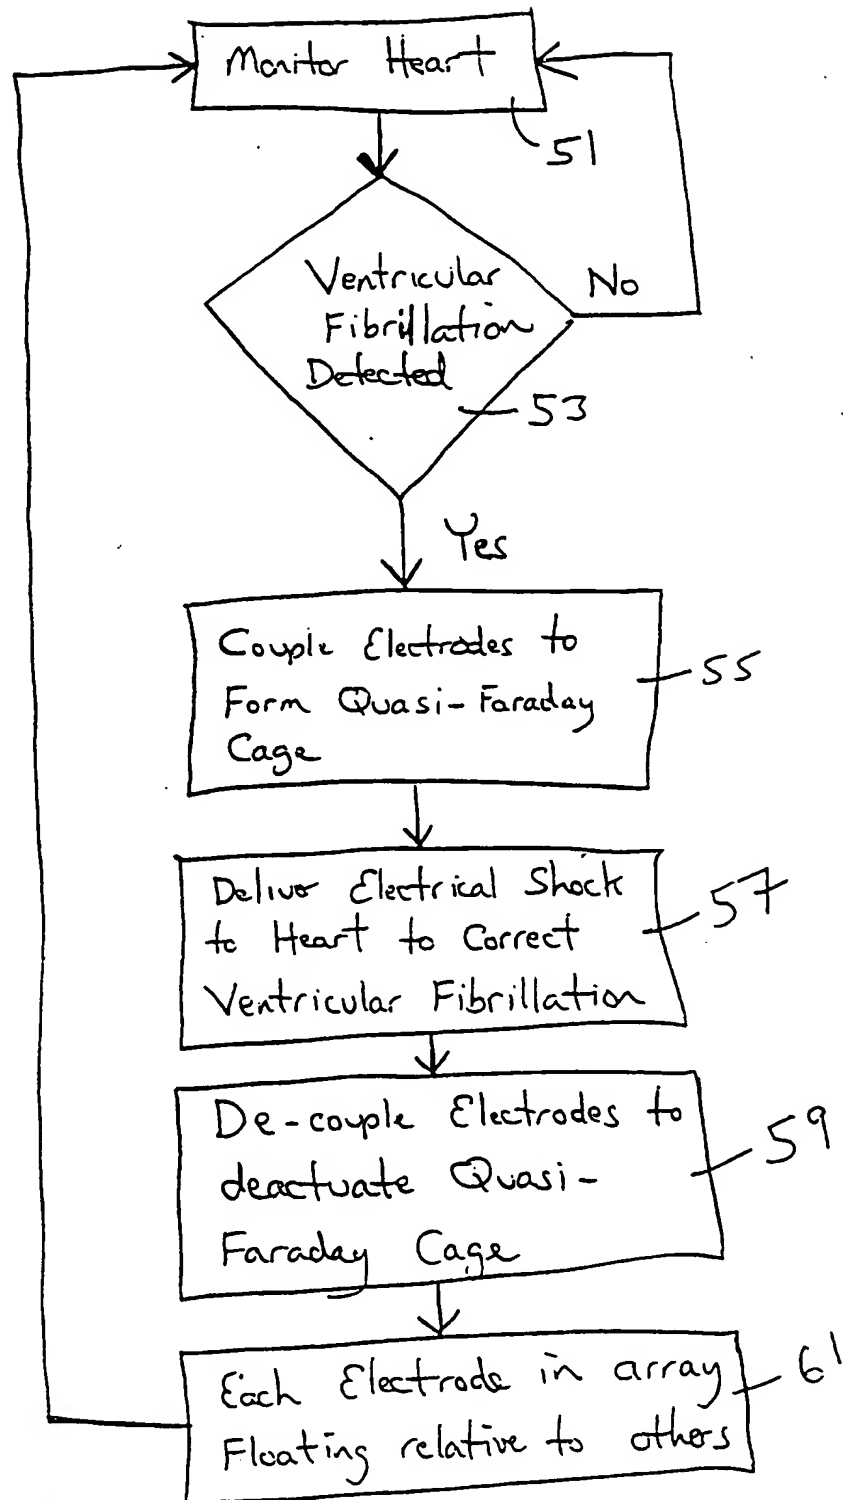 Monitor Heart
51
Ventricular
No
Fibrillation
Detected
53
Yes
Couple Electrodes to
55
Form Quasi-Faraday
Cage
Deliver Electrical Shock
57
to Heart to Correct
Ventricular Fibrillation
De-couple Electrodes to
59
deactuate Quasi-
Faraday Cage
Each Electrode in array
61
Floating relative to others